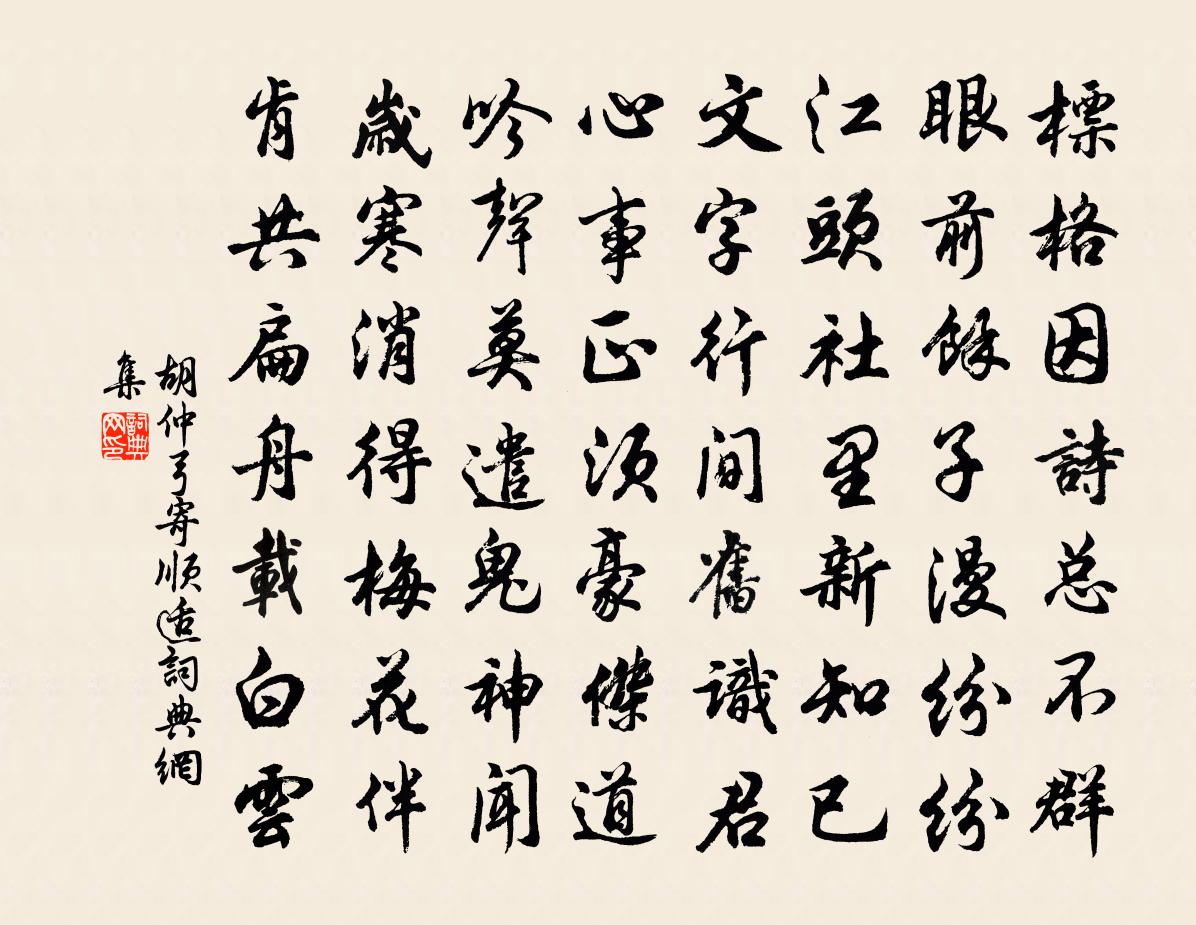 標格因詩总不群
眼前餘子漫纷纷
江頭社里新知已
文字行间舊識君
心事正须豪傑道
吟聲莫遣鬼神闻
歲寒消得梅花伴
肯共扁舟載白雲
胡仲弓寄順适詞典網
集
詞典
网印